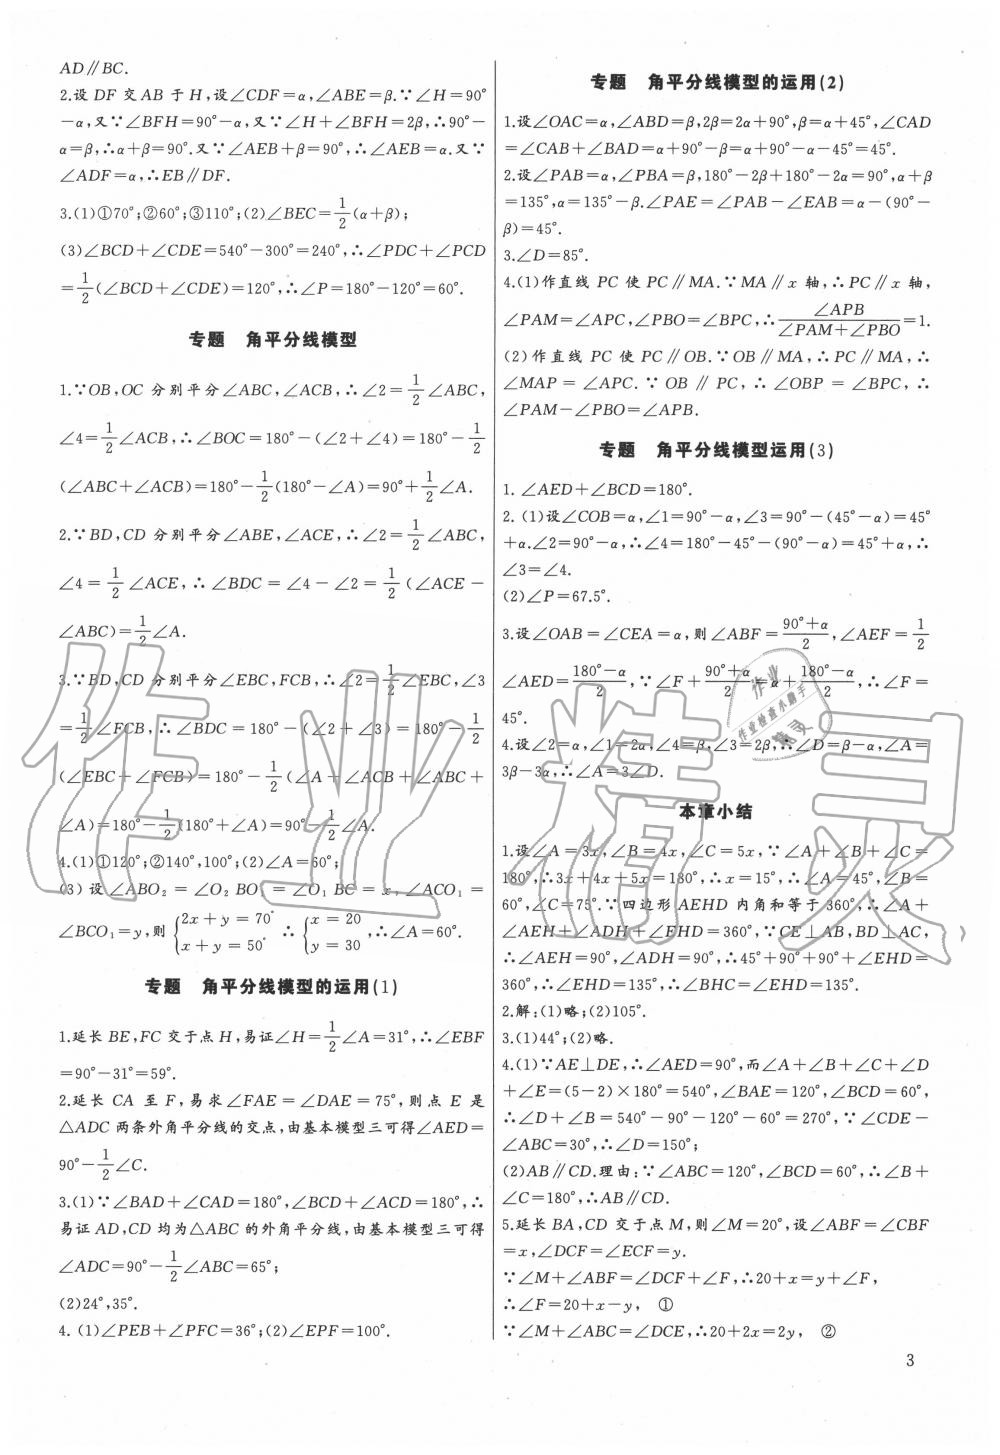 AD∥BC.
2.设 DF 交 AB 于 H,设∠CDF=α,∠ABE=β.∵∠H=90°
-α,又∵∠BFH=90°-α,又∵∠H+∠BFH=2β,∴90°-
α=β,∴α+β=90°.又∵∠AEB+β=90°,∴∠AEB=α.又∵
∠ADF=α,∴EB∥DF.
3.(1)①70°;②60°;③110°;(2)∠BEC=1/2(α+β);
(3)∠BCD+∠CDE=540°-300°=240°,∴∠PDC+∠PCD
=1/2(∠BCD+∠CDE)=120°,∴∠P=180°-120°=60°.
专题 角平分线模型
1.∵OB,OC 分别平分∠ABC,∠ACB,∴∠2=1/2∠ABC,
∠4=1/2∠ACB,∴∠BOC=180°-(∠2+∠4)=180°-1/2
(∠ABC+∠ACB)=180°-1/2(180°-∠A)=90°+1/2∠A.
2.∵BD,CD 分别平分∠ABE,∠ACE,∴∠2=1/2∠ABC,
∠4=1/2∠ACE,∴∠BDC=∠4-∠2=1/2(∠ACE-
∠ABC)=1/2∠A.
3.∵BD,CD 分别平分∠EBC,FCB,∴∠2=1/2∠EBC,∠3
=1/2∠FCB,∴∠BDC=180°-(∠2+∠3)=180°-1/2
(∠EBC+∠FCB)=180°-1/2(∠A+∠ACB+∠ABC+
∠A)=180°-1/2(180°+∠A)=90°-1/2∠A.
4.(1)①120°;②140°,100°;(2)∠A=60°;
(3)设∠ABO₂=∠O₂BO₁=∠O₁BC=x,∠ACO₁=
∠BCO₁=y,则{2x+y=70° x+y=50° ∴{x=20 y=30,∴∠A=60°.
专题 角平分线模型的运用(1)
1.延长 BE,FC 交于点 H,易证∠H=1/2∠A=31°,∴∠EBF
=90°-31°=59°.
2.延长 CA 至 F,易求∠FAE=∠DAE=75°,则点 E 是
△ADC 两条外角平分线的交点,由基本模型三可得∠AED=
90°-1/2∠C.
3.(1)∵∠BAD+∠CAD=180°,∠BCD+∠ACD=180°,∴
易证 AD,CD 均为△ABC 的外角平分线,由基本模型三可得
∠ADC=90°-1/2∠ABC=65°;
(2)24°,35°.
4.(1)∠PEB+∠PFC=36°;(2)∠EPF=100°.
专题 角平分线模型的运用(2)
1.设∠OAC=α,∠ABD=β,2β=2α+90°,β=α+45°,∠CAD
=∠CAB+∠BAD=α+90°-β=α+90°-α-45°=45°.
2.设∠PAB=α,∠PBA=β,180°-2β+180°-2α=90°,α+β
=135°,α=135°-β.∠PAE=∠PAB-∠EAB=α-(90°-
β)=45°.
3.∠D=85°.
4.(1)作直线 PC 使 PC∥MA.∵MA∥x 轴,∴PC∥x 轴,
∠PAM=∠APC,∠PBO=∠BPC,∴∠APB/(∠PAM+∠PBO)=1.
(2)作直线 PC 使 PC∥OB.∵OB∥MA,∴PC∥MA,∴
∠MAP=∠APC.∵OB∥PC,∴∠OBP=∠BPC,∴
∠PAM-∠PBO=∠APB.
专题 角平分线模型运用(3)
1.∠AED+∠BCD=180°.
2.(1)设∠COB=α,∠1=90°-α,∠3=90°-(45°-α)=45°
+α.∠2=90°-α,∴∠4=180°-45°-(90°-α)=45°+α,∴
∠3=∠4.
(2)∠P=67.5°.
3.设∠OAB=∠CEA=α,则∠ABF=(90°+α)/2,∠AEF=1/2
∠AED=(180°-α)/2,∵∠F+(90°+α)/2+(180°-α)/2,∴∠F=
45°.
4.设∠2=α,∠1=2α,∠4=β,∠3=2β,∴∠D=β-α,∠A=
3β-3α,∴∠A=3∠D.
本章小结
1.设∠A=3x,∠B=4x,∠C=5x,∵∠A+∠B+∠C=
180°,∴3x+4x+5x=180°,∴x=15°,∴∠A=45°,∠B=
60°,∠C=75°.∵四边形 AEHD 内角和等于 360°,∴∠A+
∠AEH+∠ADH+∠EHD=360°,∵CE⊥AB,BD⊥AC,
∴∠AEH=90°,∠ADH=90°,∴45°+90°+90°+∠EHD=
360°,∴∠EHD=135°,∴∠BHC=∠EHD=135°.
2.解:(1)略;(2)105°.
3.(1)44°;(2)略.
4.(1)∵AE⊥DE,∴∠AED=90°,而∠A+∠B+∠C+∠D
+∠E=(5-2)×180°=540°,∠BAE=120°,∠BCD=60°,
∴∠D+∠B=540°-90°-120°-60°=270°,∵∠CDE-
∠ABC=30°,∴∠D=150°;
(2)AB∥CD.理由:∵∠ABC=120°,∠BCD=60°,∴∠B+
∠C=180°,∴AB∥CD.
5.延长 BA,CD 交于点 M,则∠M=20°,设∠ABF=∠CBF
=x,∠DCF=∠ECF=y.
∵∠M+∠ABF=∠DCF+∠F,∴20+x=y+∠F,
∴∠F=20+x-y, ①
∵∠M+∠ABC=∠DCE,∴20+2x=2y, ②
3
作业精灵
作业
作业检查小助手
精灵